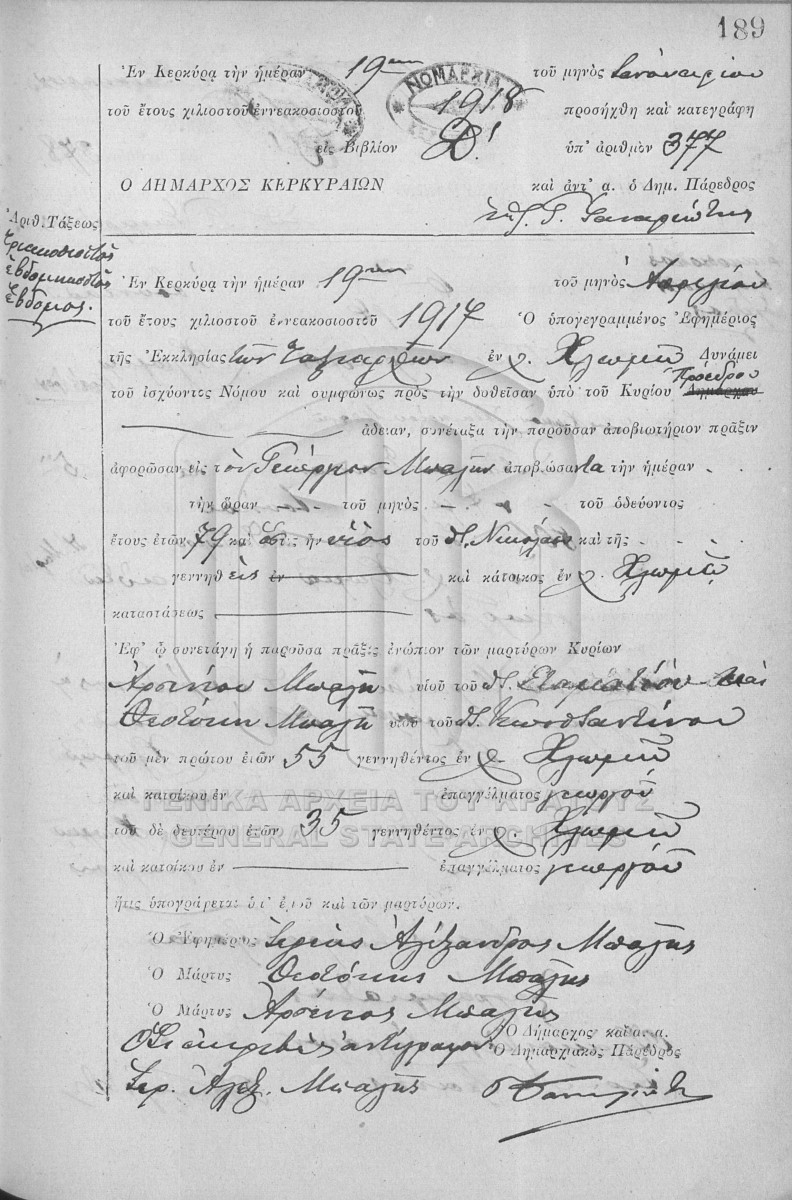 189
Ἐν Κερκύρᾳ τὴν ἡμέραν 19ην τοῦ μηνὸς Ἰανουαρίου
τοῦ ἔτους χιλιοστοῦ ἐννεακοσιοστοῦ 1918 προσήχθη καὶ κατεγράφη
ΝΟΜΑΡΧΙΑ
εἰς Βιβλίον Δ! ὑπ' ἀριθμὸν 377
Ο ΔΗΜΑΡΧΟΣ ΚΕΡΚΥΡΑΙΩΝ καὶ ἀντ' α. ὁ Δημ. Πάρεδρος
Ἀριθ. Τάξεως
τριακοσιοστὸς
ἑβδομηκοστὸς
ἕβδομος.
Ἐν Κερκύρᾳ τὴν ἡμέραν 19ην τοῦ μηνὸς Ἀπριλίου
τοῦ ἔτους χιλιοστοῦ ἐννεακοσιοστοῦ 1917 Ὁ ὑπογεγραμμένος Ἐφημέριος
τῆς Ἐκκλησίας τῶν Ταξιαρχῶν ἐν χ. Χλωμῷ Δυνάμει
τοῦ ἰσχύοντος Νόμου καὶ συμφώνως πρὸς τὴν δοθεῖσαν ὑπὸ τοῦ Κυρίου Δημάρχου Προέδρου
ἄδειαν, συνέταξα τὴν παροῦσαν ἀποβιωτήριον πρᾶξιν
ἀφορῶσαν εἰς τὸν Γεώργιον Μπαλῆν ἀποβιώσαντα τὴν ἡμέραν
τὴν ὥραν τοῦ μηνὸς τοῦ ὁδεύοντος
ἔτους ἐτῶν 79 καὶ ὅστις ἦν υἱὸς τοῦ π. Νικολάου καὶ τῆς
γεννηθεὶς ἐν καὶ κάτοικος ἐν χ. Χλωμῷ
καταστάσεως
Ἐφ' ᾧ συνετάγη ἡ παροῦσα πρᾶξις ἐνώπιον τῶν μαρτύρων Κυρίων
Ἀρσενίου Μπαλῆ υἱοῦ τοῦ π. Σταματίου καὶ
Θεοτόκη Μπαλῆ υἱοῦ τοῦ π. Κωνσταντίνου
τοῦ μὲν πρώτου ἐτῶν 55 γεννηθέντος ἐν χ. Χλωμῷ
καὶ κατοίκου ἐν ἐπαγγέλματος γεωργοῦ
ΓΕΝΙΚΑ ΑΡΧΕΙΑ ΤΟΥ ΚΡΑΤΟΥΣ
τοῦ δὲ δευτέρου ἐτῶν 35 γεννηθέντος ἐν χ. Χλωμῷ
GENERAL STATE ARCHIVES
καὶ κατοίκου ἐν ἐπαγγέλματος γεωργοῦ
ἥτις ὑπογράφεται ὑπ' ἐμοῦ καὶ τῶν μαρτύρων.
Ὁ Ἐφημέριος Ἱερεὺς Ἀλέξανδρος Μπαλῆς
Ὁ Μάρτυς Θεοτόκης Μπαλῆς
Ὁ Μάρτυς Ἀρσένιος Μπαλῆς
Ὁ Δήμαρχος καὶ α. α.
Ὁ Δημαρχιακὸς Πάρεδρος
Ἱερ. Ἀλεξ. Μπαλῆς